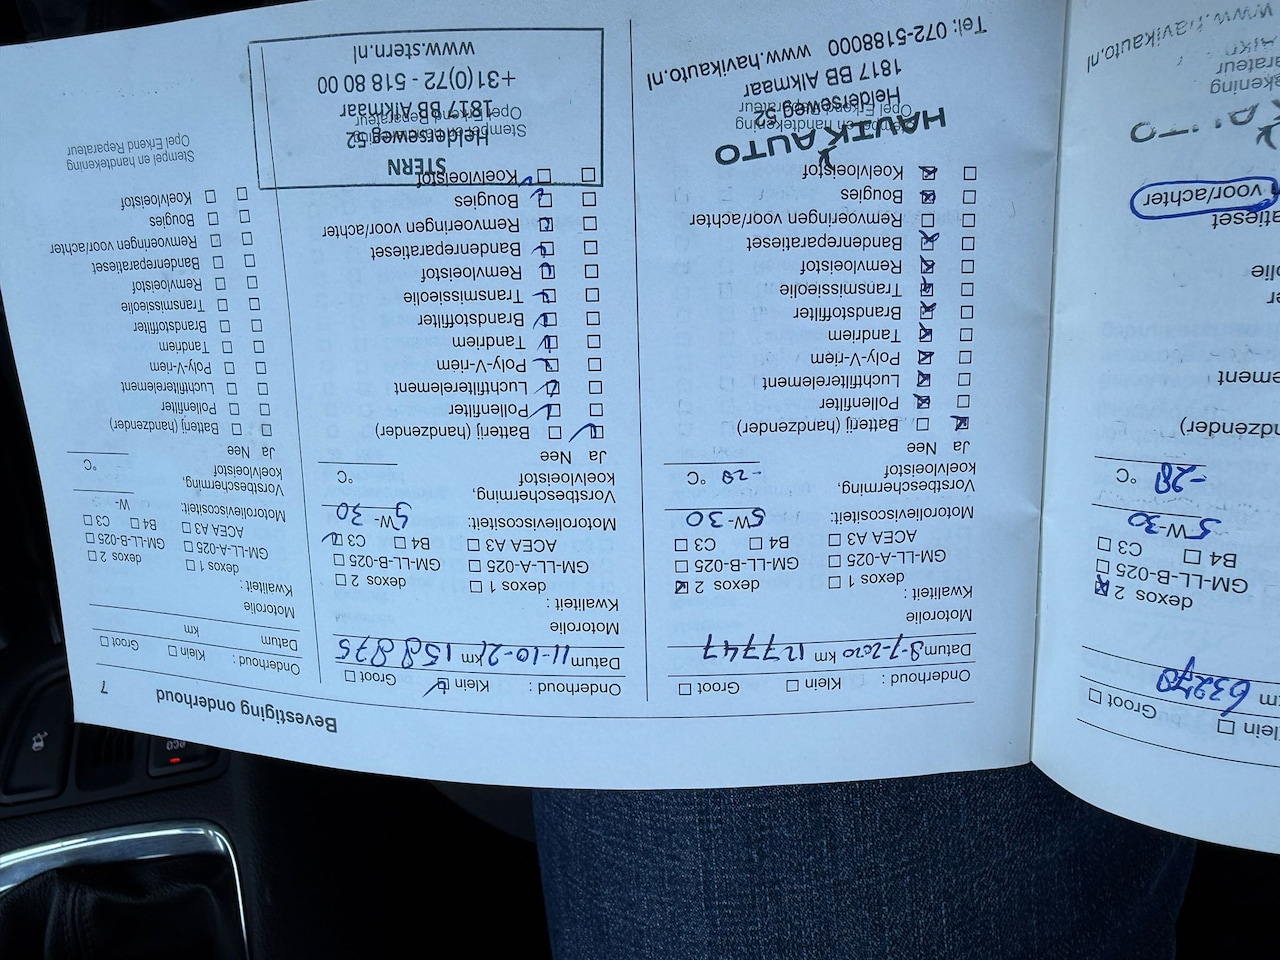 Bevestiging onderhoud
7
Klein ☐ Groot ☐
63270
dexos 2 ☒
GM-LL-B-025 ☐
B4 ☐ C3 ☐
5W-30
-28 °C
voor/achter
www.havikauto.nl
Onderhoud : Klein ☐ Groot ☐
Datum 8-7-2020 km 127747
Motorolie
Kwaliteit : dexos 1 ☐ dexos 2 ☒
GM-LL-A-025 ☐ GM-LL-B-025 ☐
ACEA A3 ☐ B4 ☐ C3 ☐
Motorolieviscositeit: 5W-30
Vorstbescherming,
koelvloeistof -28 °C
Ja Nee
Batterij (handzender)
Pollenfilter
Luchtfilterelement
Poly-V-riem
Tandriem
Brandstoffilter
Transmissieolie
Remvloeistof
Bandenreparatieset
Remvoeringen voor/achter
Bougies
Koelvloeistof
Stempel en handtekening
Opel Erkend Reparateur
HAVIK AUTO
Helderseweg 52
1817 BB Alkmaar
Tel: 072-5188000 www.havikauto.nl
Onderhoud : Klein ☑ Groot ☐
Datum 11-10-21 km 158875
Motorolie
Kwaliteit : dexos 1 ☐ dexos 2 ☐
GM-LL-A-025 ☐ GM-LL-B-025 ☐
ACEA A3 ☐ B4 ☐ C3 ☑
Motorolieviscositeit: 5W-30
Vorstbescherming,
koelvloeistof °C
Ja Nee
Batterij (handzender)
Pollenfilter
Luchtfilterelement
Poly-V-riem
Tandriem
Brandstoffilter
Transmissieolie
Remvloeistof
Bandenreparatieset
Remvoeringen voor/achter
Bougies
Koelvloeistof
Stempel en handtekening
Opel Erkend Reparateur
STERN
Helderseweg 52
1817 BB Alkmaar
+31(0)72 - 518 80 00
www.stern.nl
Onderhoud : Klein ☐ Groot ☐
Datum km
Motorolie
Kwaliteit : dexos 1 ☐ dexos 2 ☐
GM-LL-A-025 ☐ GM-LL-B-025 ☐
ACEA A3 ☐ B4 ☐ C3 ☐
Motorolieviscositeit: W-
Vorstbescherming,
koelvloeistof °C
Ja Nee
Batterij (handzender)
Pollenfilter
Luchtfilterelement
Poly-V-riem
Tandriem
Brandstoffilter
Transmissieolie
Remvloeistof
Bandenreparatieset
Remvoeringen voor/achter
Bougies
Koelvloeistof
Stempel en handtekening
Opel Erkend Reparateur
eco